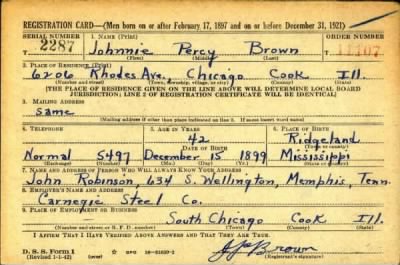 REGISTRATION CARD—(Men born on or after February 17, 1897 and on or before December 31, 1921)
SERIAL NUMBER 1. NAME (Print) ORDER NUMBER
2287 Johnnie Percy Brown 11107
(First) (Middle) (Last)
2. PLACE OF RESIDENCE (Print)
6206 Rhodes Ave. Chicago Cook Ill.
(Number and street) (Town, township, village, or city) (County) (State)
[THE PLACE OF RESIDENCE GIVEN ON THE LINE ABOVE WILL DETERMINE LOCAL BOARD
JURISDICTION; LINE 2 OF REGISTRATION CERTIFICATE WILL BE IDENTICAL]
3. MAILING ADDRESS
Same
(Mailing address if other than place indicated on line 2. If same insert word same)
4. TELEPHONE 5. AGE IN YEARS 6. PLACE OF BIRTH
42 Ridgeland
DATE OF BIRTH (Town or county)
Normal 5497 December 15 1899 Mississippi
(Exchange) (Number) (Mo.) (Day) (Yr.) (State or country)
7. NAME AND ADDRESS OF PERSON WHO WILL ALWAYS KNOW YOUR ADDRESS
John Robinson, 634 S. Wellington, Memphis, Tenn.
8. EMPLOYER'S NAME AND ADDRESS
Carnegie Steel Co.
9. PLACE OF EMPLOYMENT OR BUSINESS
South Chicago Cook Ill.
(Number and street or R. F. D. number) (Town) (County) (State)
I AFFIRM THAT I HAVE VERIFIED ABOVE ANSWERS AND THAT THEY ARE TRUE.
D. S. S. Form 1
(Revised 1-1-42) (over) GPO Brown
(Registrant's signature)